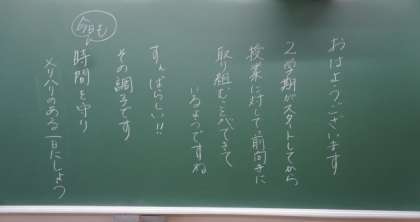 おはようございます
2学期がスタートしてから
授業に対して前向きに
取り組むことができて
いるようですね
すんばらしい!!
その調子です
今日も
時間を守り
メリハリのある一日にしよう